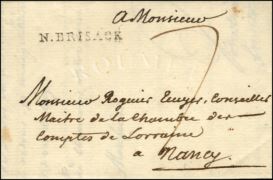 A Monsieur
N.BRISACK
Monsieur Roguier Ecuyer, Conseiller
Maitre de la Chambre des
Comptes de Lorraine
a Nancy